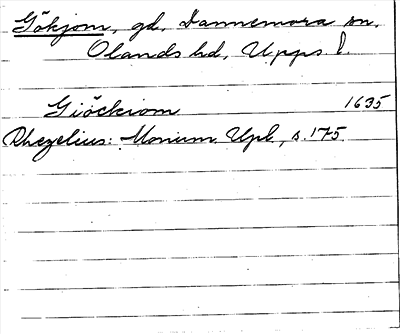 Gökjom, gd, Dannemora sn,
Olands hd, Upps. l.
Giöckiom 1635
Rhezelius: Monum. Upl., s. 175.